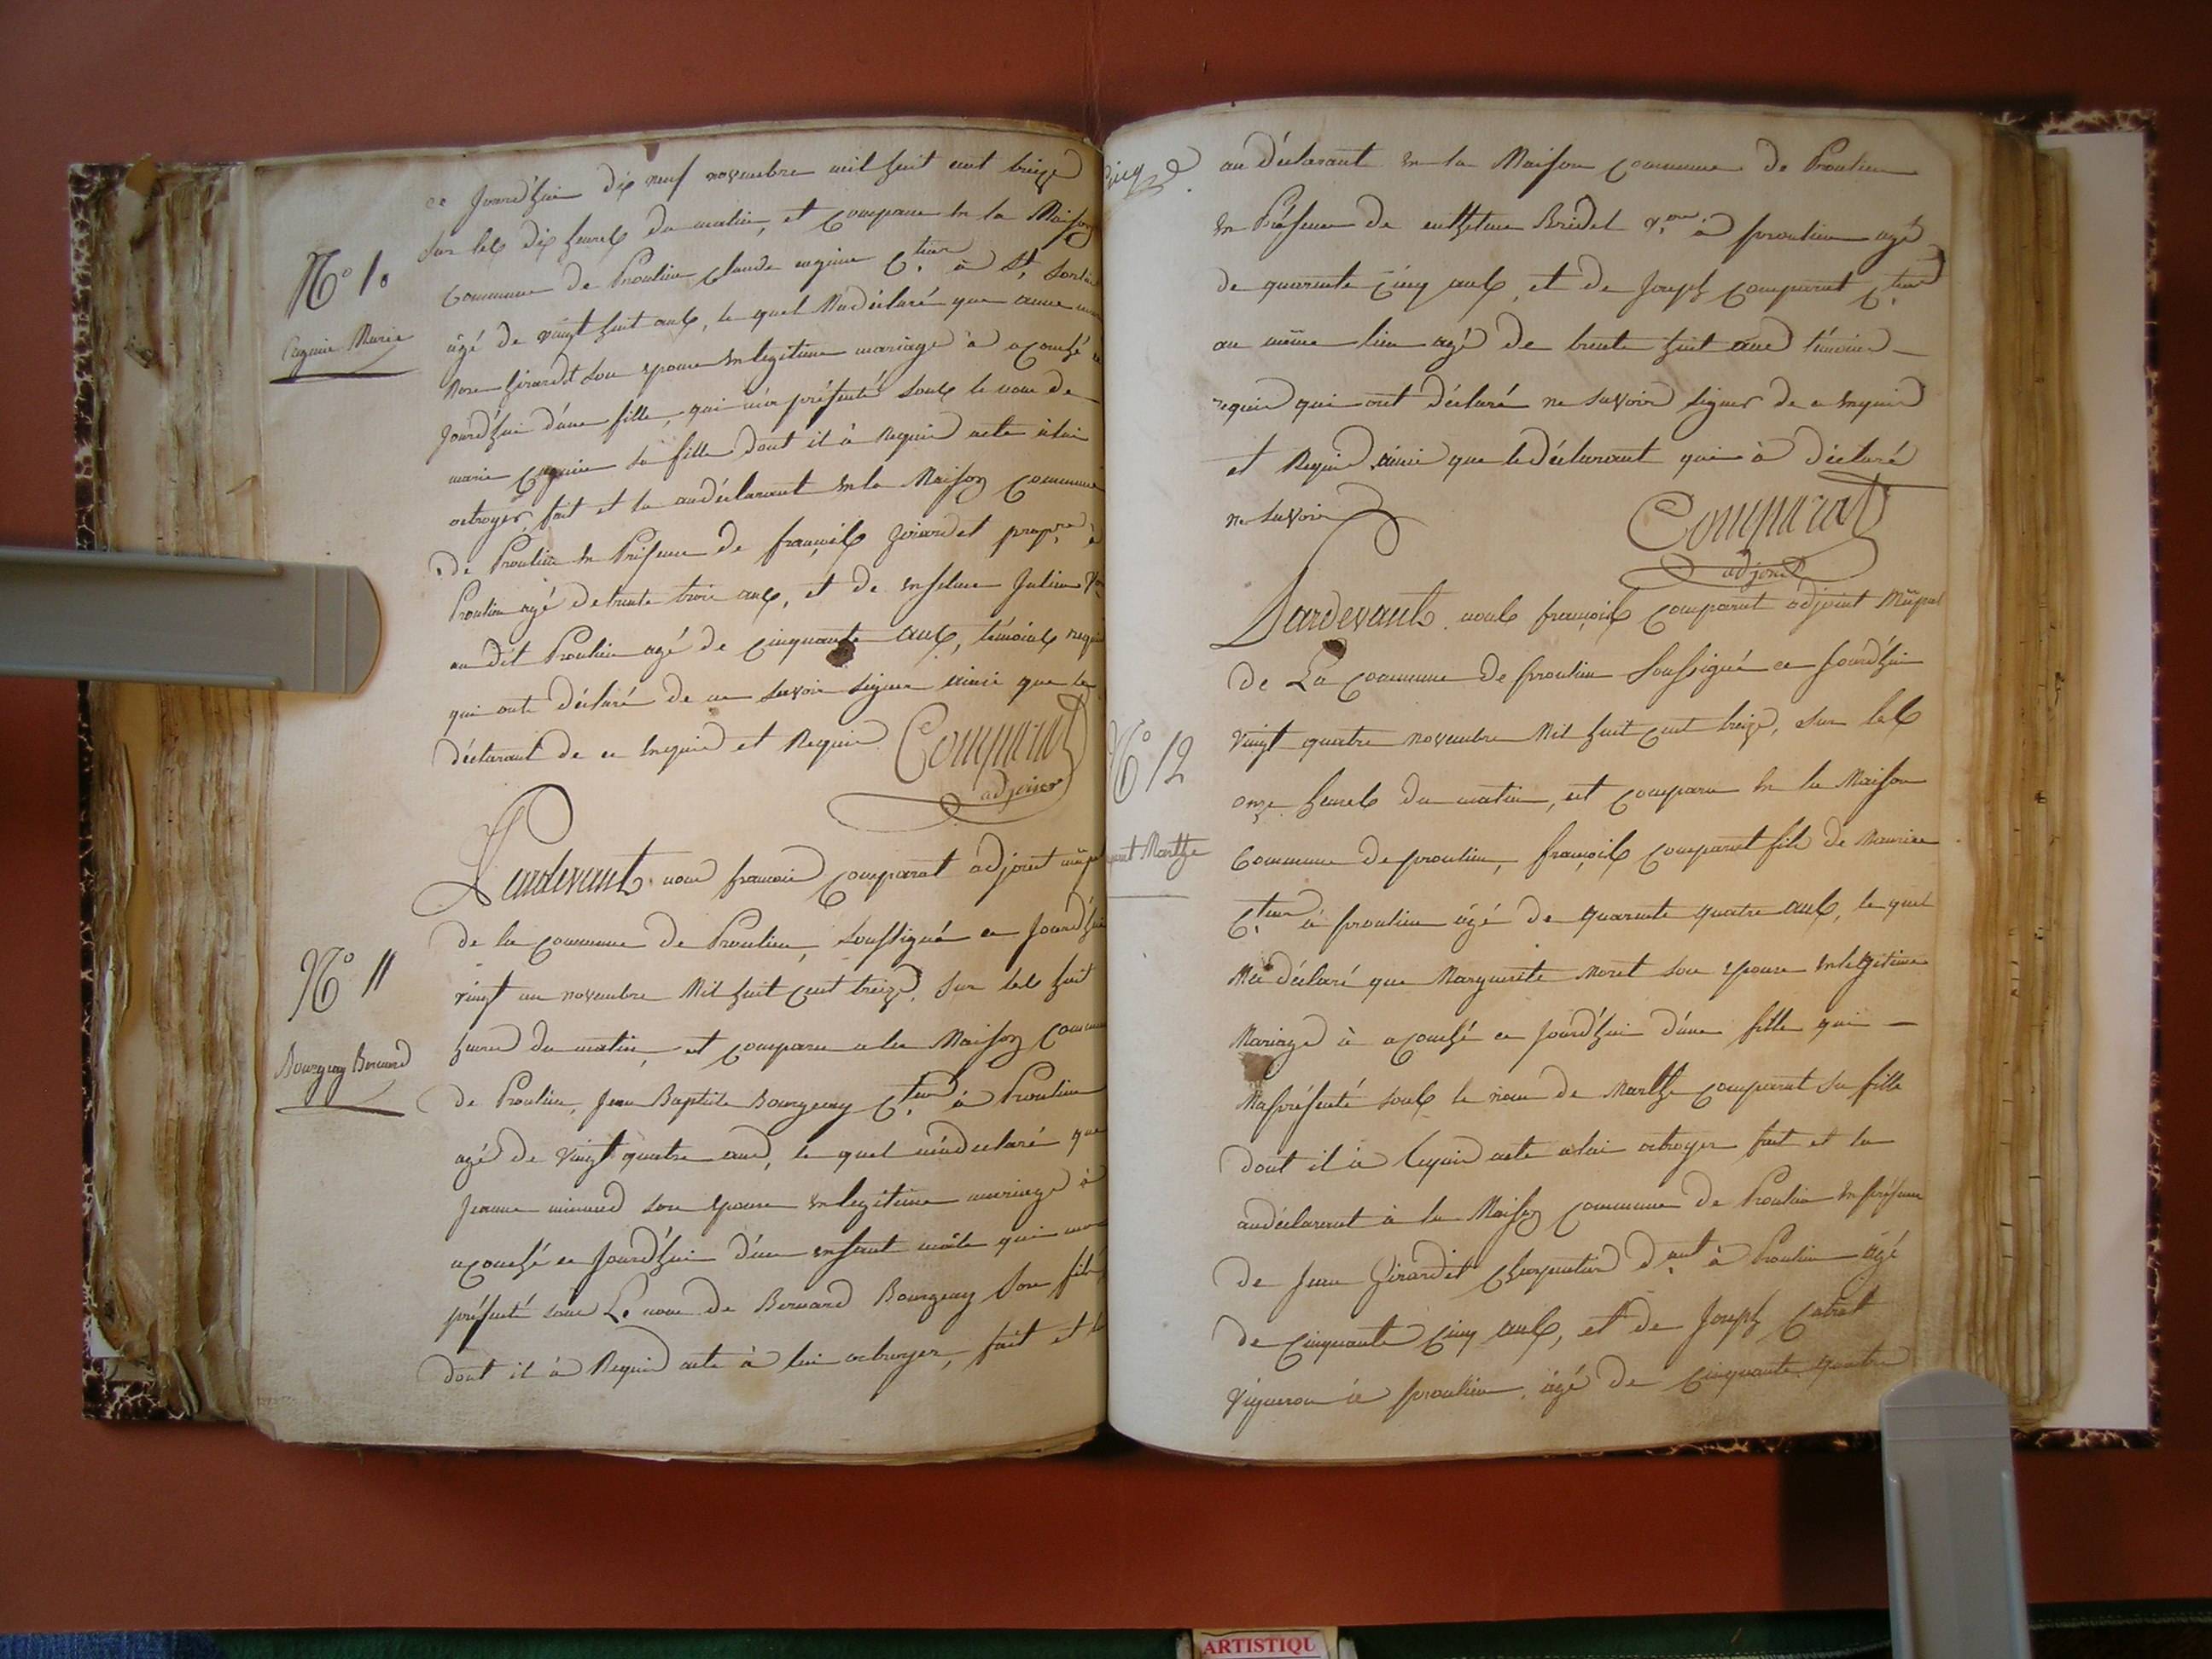 ce Jourd'hui dix neuf novembre mil huit cent treize
sur les dix heures du matin, est comparu en la Maison
N° 10
commune de Proulieu Claude cagnin C.teur à St. Sorlin
âgé de vingt huit ans, le quel Ma déclaré que anne
Cagnin Marie
girardet son epouse en legitime mariage à acouché ce
jourd'hui d'une fille, qui m'a présenté sous le nom de
marie cagnin sa fille dont il à requis acte à lui
octroyer, fait et lu au déclarant en la Maison commune
de Proulieu en Présence de françois girardet prop.re à
Proulieu agé de trente trois ans, et de Julien V.on
au dit Proulieu agé de cinquante ans, témoins requis
qui ont déclaré de ne savoir signer ainsi que le
déclarant de ce enquis et Requis Comparat
adjoint
Pardevant nous francois comparat adjoint mūpal
de la commune de Proulieu, soussigné ce Jourd'hui
N° 11
vingt un novembre Mil huit cent treize, sur les huit
heures du matin, est comparu a la Maison Commune
Bourgeay Bernard
de Proulieu, Jean Baptiste Bourgeay C.teur à Proulieu
agé de vingt quatre ans, le quel m'a déclaré que
Jeanne minand son epouse en legitime mariage à
acouché ce Jourd'hui d'un enfant mâle qui m'a
présenté sous Le nom de Bernard Bourgeay son fils
dont il à Requis acte à lui octroyer, fait et lu
au déclarant en la Maison commune de Proulieu
en Présence de Bridet V.on à proulieu agé
de quarante cinq ans, et de Joseph comparat C.teur
au même lieu agé de trente huit ans témoins
requis qui ont déclaré ne savoir signer de ce enquis
et Requis ainsi que le déclarant qui à déclaré
ne savoir Comparat
adjoint
Pardevant nous françois comparat adjoint Mūpal
de La commune de proulieu soussigné ce jourd'hui
N° 12
vingt quatre novembre Mil huit cent treize, sur les
onze heures du matin, est comparu en la Maison
Marthe
commune de proulieu, françois comparat fils de Maurice
C.teur à proulieu âgé de quarante quatre ans, le quel
Ma déclaré que Marguerite Moret son epouse en legitime
Mariage à acouché ce jourd'hui d'une fille qui
Ma présenté sous le nom de Marthe comparat sa fille
dont il à requis acte a lui octroyer fait et lu
au déclarant à la Maison commune de Proulieu en présence
de Jean Girardet charpentier d.ant à Proulieu âgé
de cinquante cinq ans, et de Joseph
vigneron à proulieu, âgé de cinquante quatre
ARTISTIQU